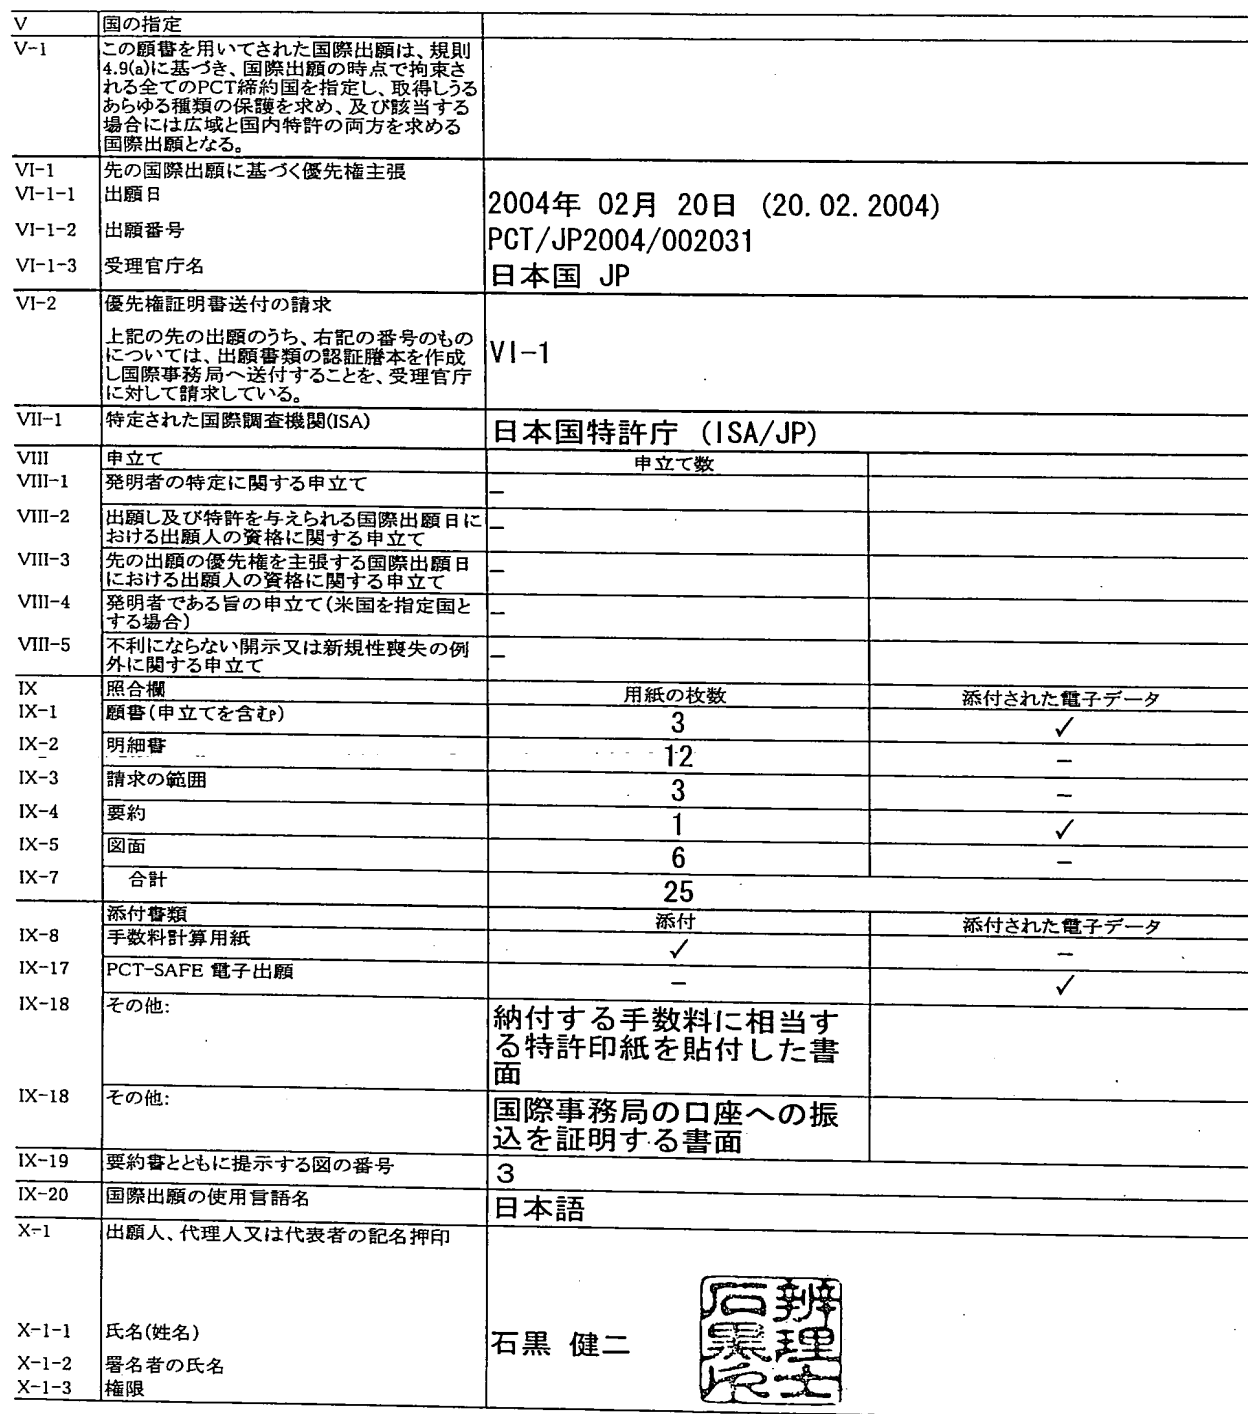 V 国の指定
V-1 この願書を用いてされた国際出願は、規則
4.9(a)に基づき、国際出願の時点で拘束さ
れる全てのPCT締約国を指定し、取得しうる
あらゆる種類の保護を求め、及び該当する
場合には広域と国内特許の両方を求める
国際出願となる。
VI-1 先の国際出願に基づく優先権主張
VI-1-1 出願日 2004年 02月 20日 (20.02.2004)
VI-1-2 出願番号 PCT/JP2004/002031
VI-1-3 受理官庁名 日本国 JP
VI-2 優先権証明書送付の請求
上記の先の出願のうち、右記の番号のもの
については、出願書類の認証謄本を作成
し国際事務局へ送付することを、受理官庁
に対して請求している。
VI-1
VII-1 特定された国際調査機関(ISA) 日本国特許庁 (ISA/JP)
VIII 申立て 申立て数
VIII-1 発明者の特定に関する申立て –
VIII-2 出願し及び特許を与えられる国際出願日に
おける出願人の資格に関する申立て –
VIII-3 先の出願の優先権を主張する国際出願日
における出願人の資格に関する申立て –
VIII-4 発明者である旨の申立て(米国を指定国と
する場合) –
VIII-5 不利にならない開示又は新規性喪失の例
外に関する申立て –
IX 照合欄 用紙の枚数 添付された電子データ
IX-1 願書(申立てを含む) 3 ✓
IX-2 明細書 12 –
IX-3 請求の範囲 3 –
IX-4 要約 1 ✓
IX-5 図面 6 –
IX-7 合計 25
添付書類 添付 添付された電子データ
IX-8 手数料計算用紙 ✓ –
IX-17 PCT-SAFE 電子出願 – ✓
IX-18 その他: 納付する手数料に相当す
る特許印紙を貼付した書
面
IX-18 その他: 国際事務局の口座への振
込を証明する書面
IX-19 要約書とともに提示する図の番号 3
IX-20 国際出願の使用言語名 日本語
X-1 出願人、代理人又は代表者の記名押印
X-1-1 氏名(姓名) 石黒 健二
X-1-2 署名者の氏名
X-1-3 権限
辨理士
石黒印